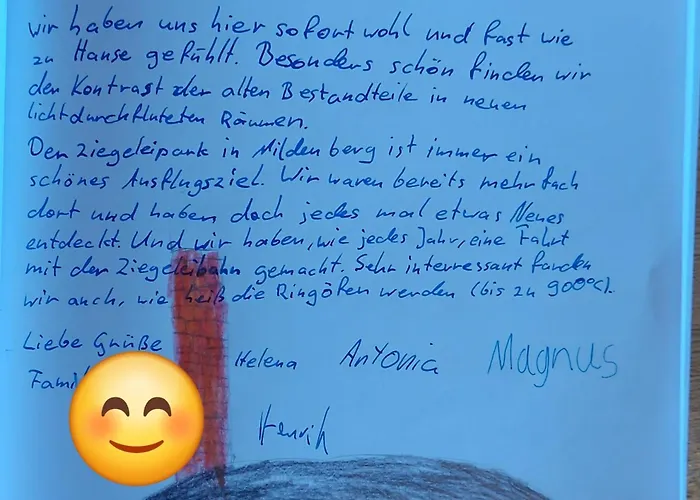 wir haben uns hier sofort wohl und fast wie
zu Hause gefühlt. Besonders schön finden wir
den Kontrast der alten Bestandteile in neuen
lichtdurchfluteten Räumen.
Der Ziegeleipark in Mildenberg ist immer ein
schönes Ausflugsziel. Wir waren bereits mehrfach
dort und haben doch jedes mal etwas Neues
entdeckt. Und wir haben, wie jedes Jahr, eine Fahrt
mit der Ziegeleibahn gemacht. Sehr interressant fanden
wir auch, wie heiß die Ringöfen werden (bis zu 900°C).
Liebe Grüße
Helena Antonia Magnus
Henrik